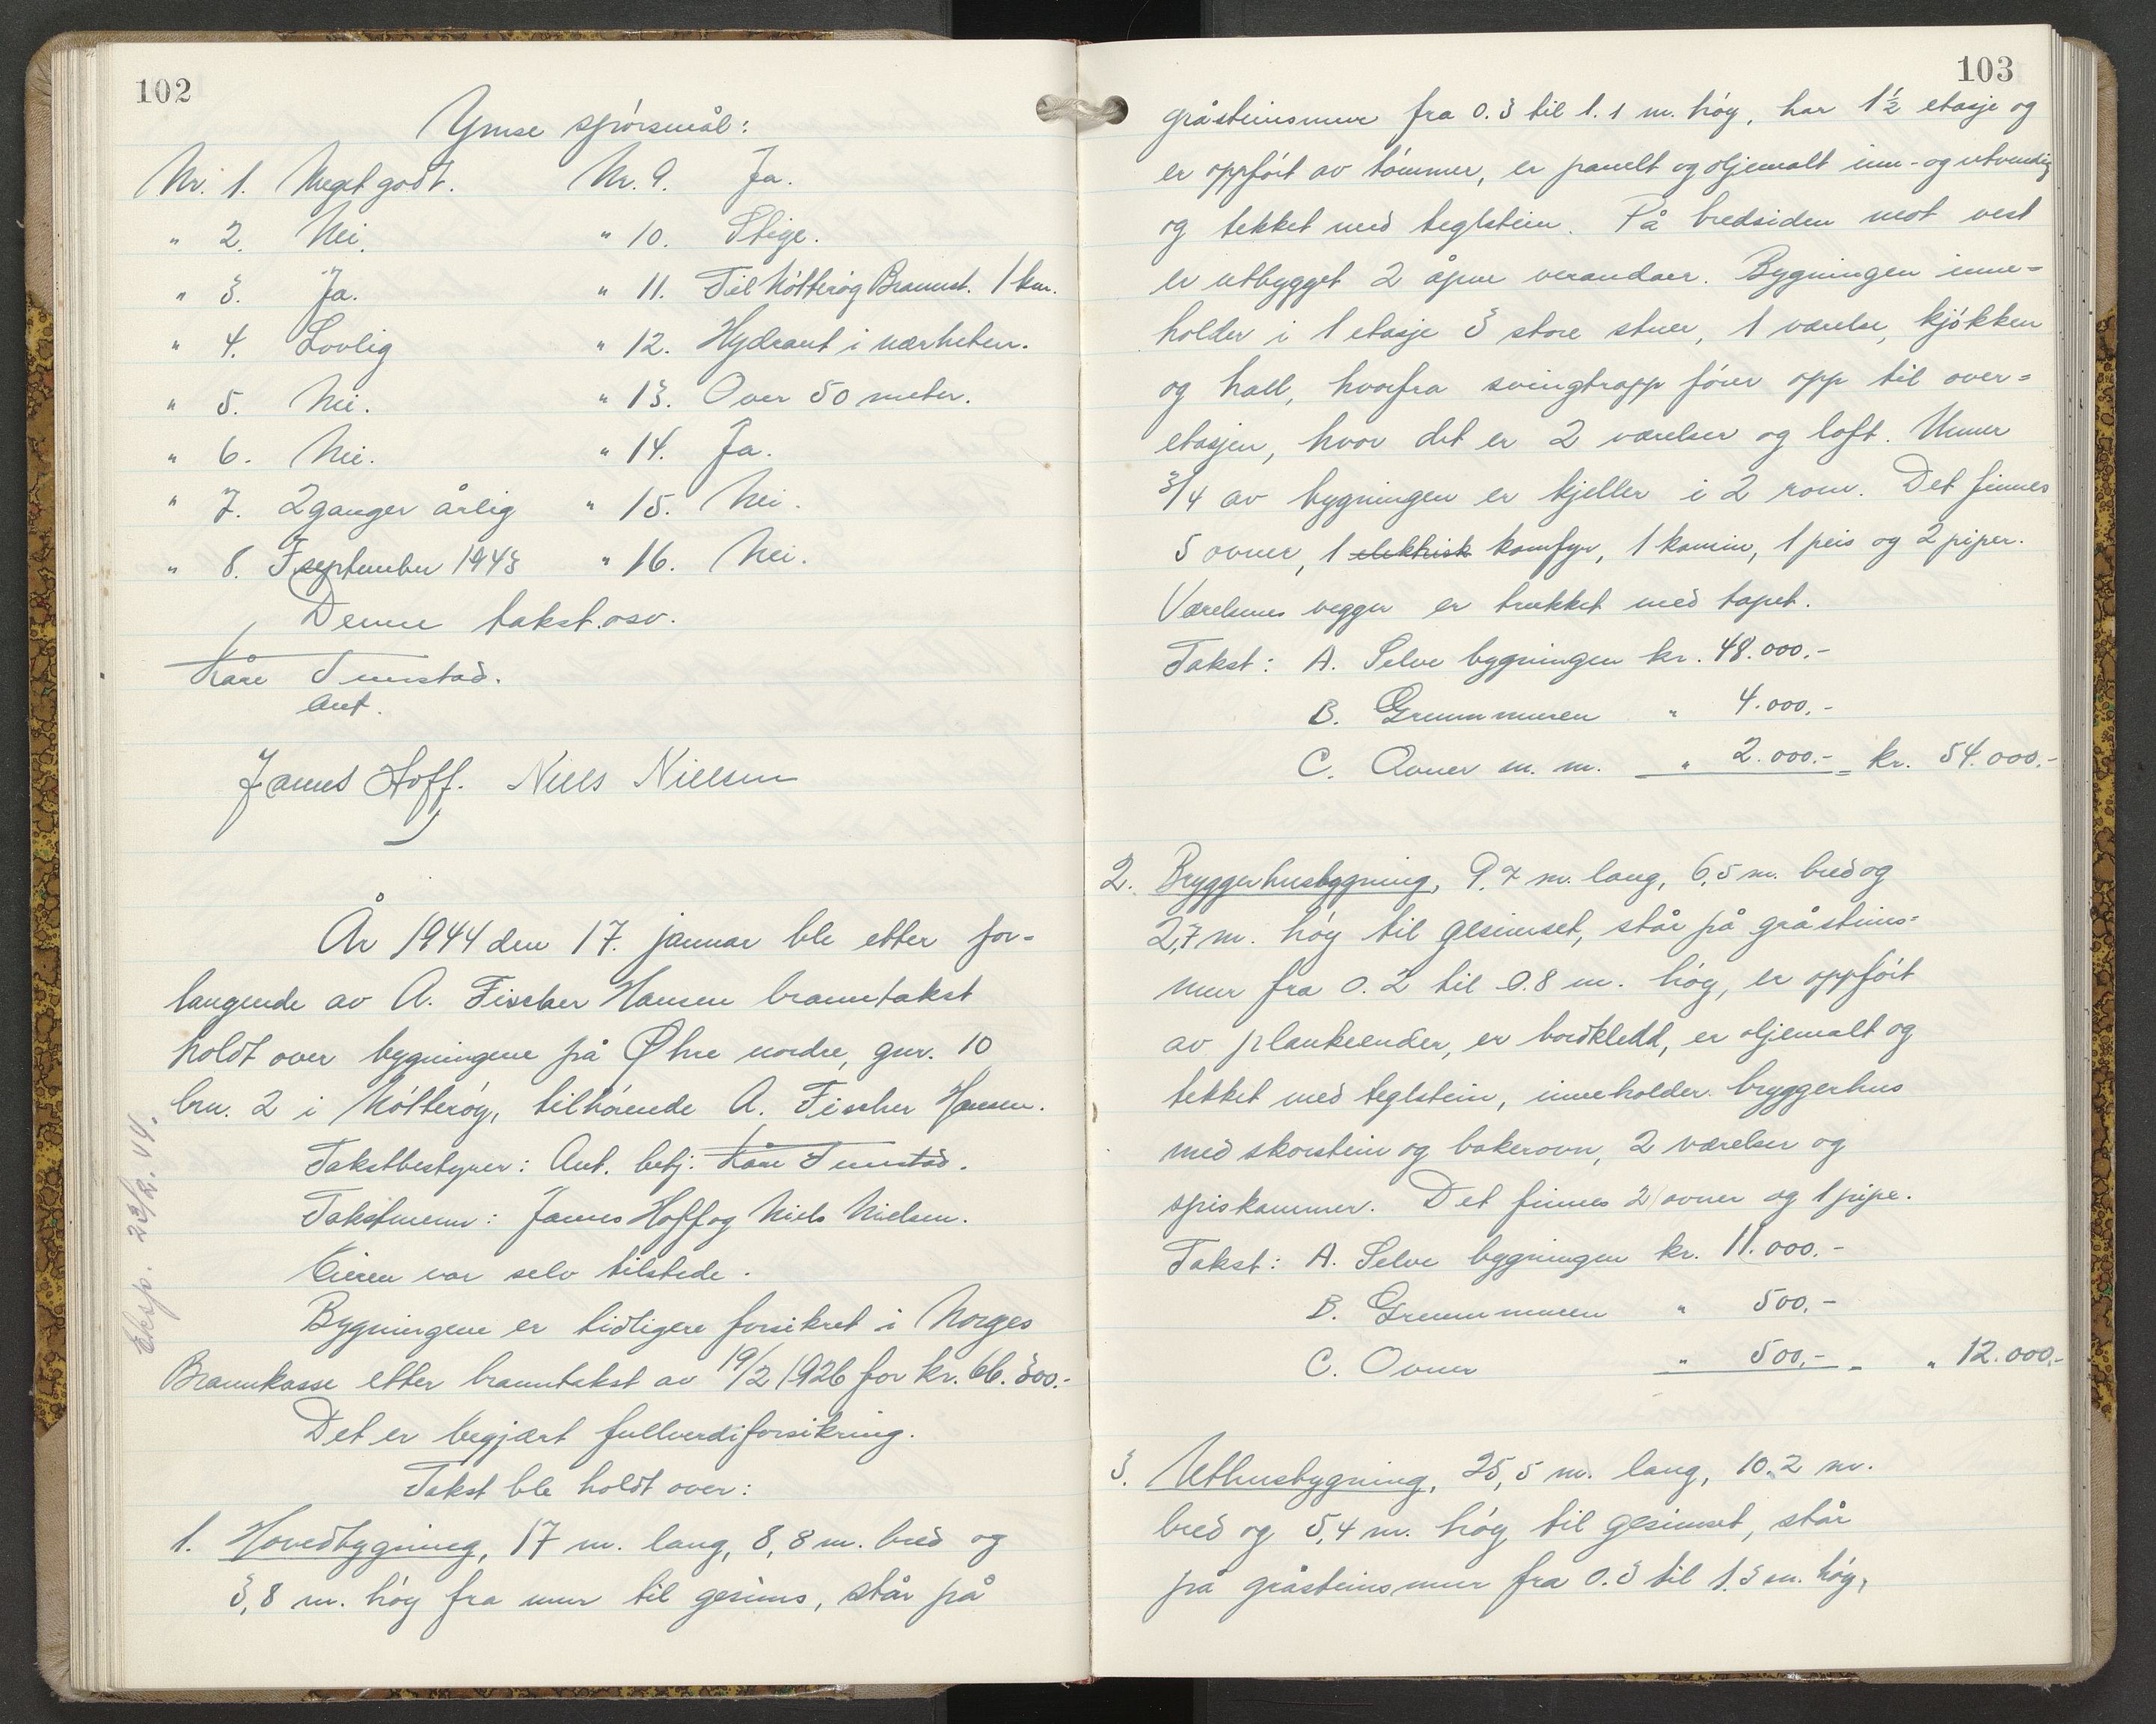 102
Ymse spörsmål:
Nr. 1. Meget godt. Nr. 9. Ja.
" 2. Nei. " 10. Stige.
" 3. Ja. " 11. Til Nötteröy Brannst. 1 km.
" 4. Lovlig " 12. Hydrant i nærheten.
" 5. Nei. " 13. Over 50 meter.
" 6. Nei. " 14. Ja.
" 7. 2 ganger årlig " 15. Nei.
" 8. I september 1943 " 16. Nei.
Denne takst osv.
Kåre
Ant.
James Hoff. Niels Nielsen
År 1944 den 17. januar ble etter for=
langende av A. Fischer Hansen branntakst
holdt over bygningene på Øhre nordre, gnr. 10
brn. 2 i Nötteröy, tilhörende A. Fischer Hansen.
Takstbestyrer: Ant. betj. Kåre
Takstmenn: James Hoff og Niels Nielsen.
Eieren var selv tilstede.
Bygningene er tidligere forsikret i Norges
Brannkasse etter branntakst av 19/2 1926 for kr. 66.300.-
Det er begjært fullverdiforsikring.
Takst ble holdt over:
1. Hovedbygning, 17 m. lang, 8,8 m. bred og
3,8 m. höy fra mur til gesims, står på
Eksp. 23/2. 44.
103
gråsteinsmur fra 0.3 til 1.1 m. höy, har 1½ etasje og
er oppfört av tömmer, er panelt og oljemalt inn- og utvendig
og tekket med teglstein. På bredsiden mot vest
er utbygget 2 åpne verandaer. Bygningen inne=
holder i 1 etasje 3 store stuer, 1 værelse, kjökken
og hall, hvorfra svingtrapp förer opp til over=
etasjen, hvor det er 2 værelser og loft. Unner
3/4 av bygningen er kjeller i 2 rom. Det finnes
5 ovner, 1 elektrisk komfyr, 1 kamin, 1 peis og 2 piper.
Værelsenes vegger er trukket med tapet.
Takst: A. Selve bygningen kr. 48.000.-
B. Grunnmuren " 4.000.-
C. Ovner m. m. " 2.000.- = kr. 54.000.-
2. Bryggerhusbygning, 9.7 m. lang, 6,5 m. bred og
2,7 m. höy til gesimset, står på gråsteins=
mur fra 0.2 til 0.8 m. höy, er oppfört
av plankeender, er bordkledd, er oljemalt og
tekket med teglstein, inneholder bryggerhus
med skorstein og bakerovn, 2 værelser og
spiskammer. Det finnes 2 ovner og 1 pipe.
Takst: A. Selve bygningen kr. 11.000.-
B. Grunnmuren " 500.-
C. Ovner " 500,- = " 12.000.-
3. Uthusbygning, 25,5 m. lang, 10.2 m.
bred og 5,4 m. höy til gesimset, står
på gråsteinsmur fra 0.3 til 1.3 m. höy,